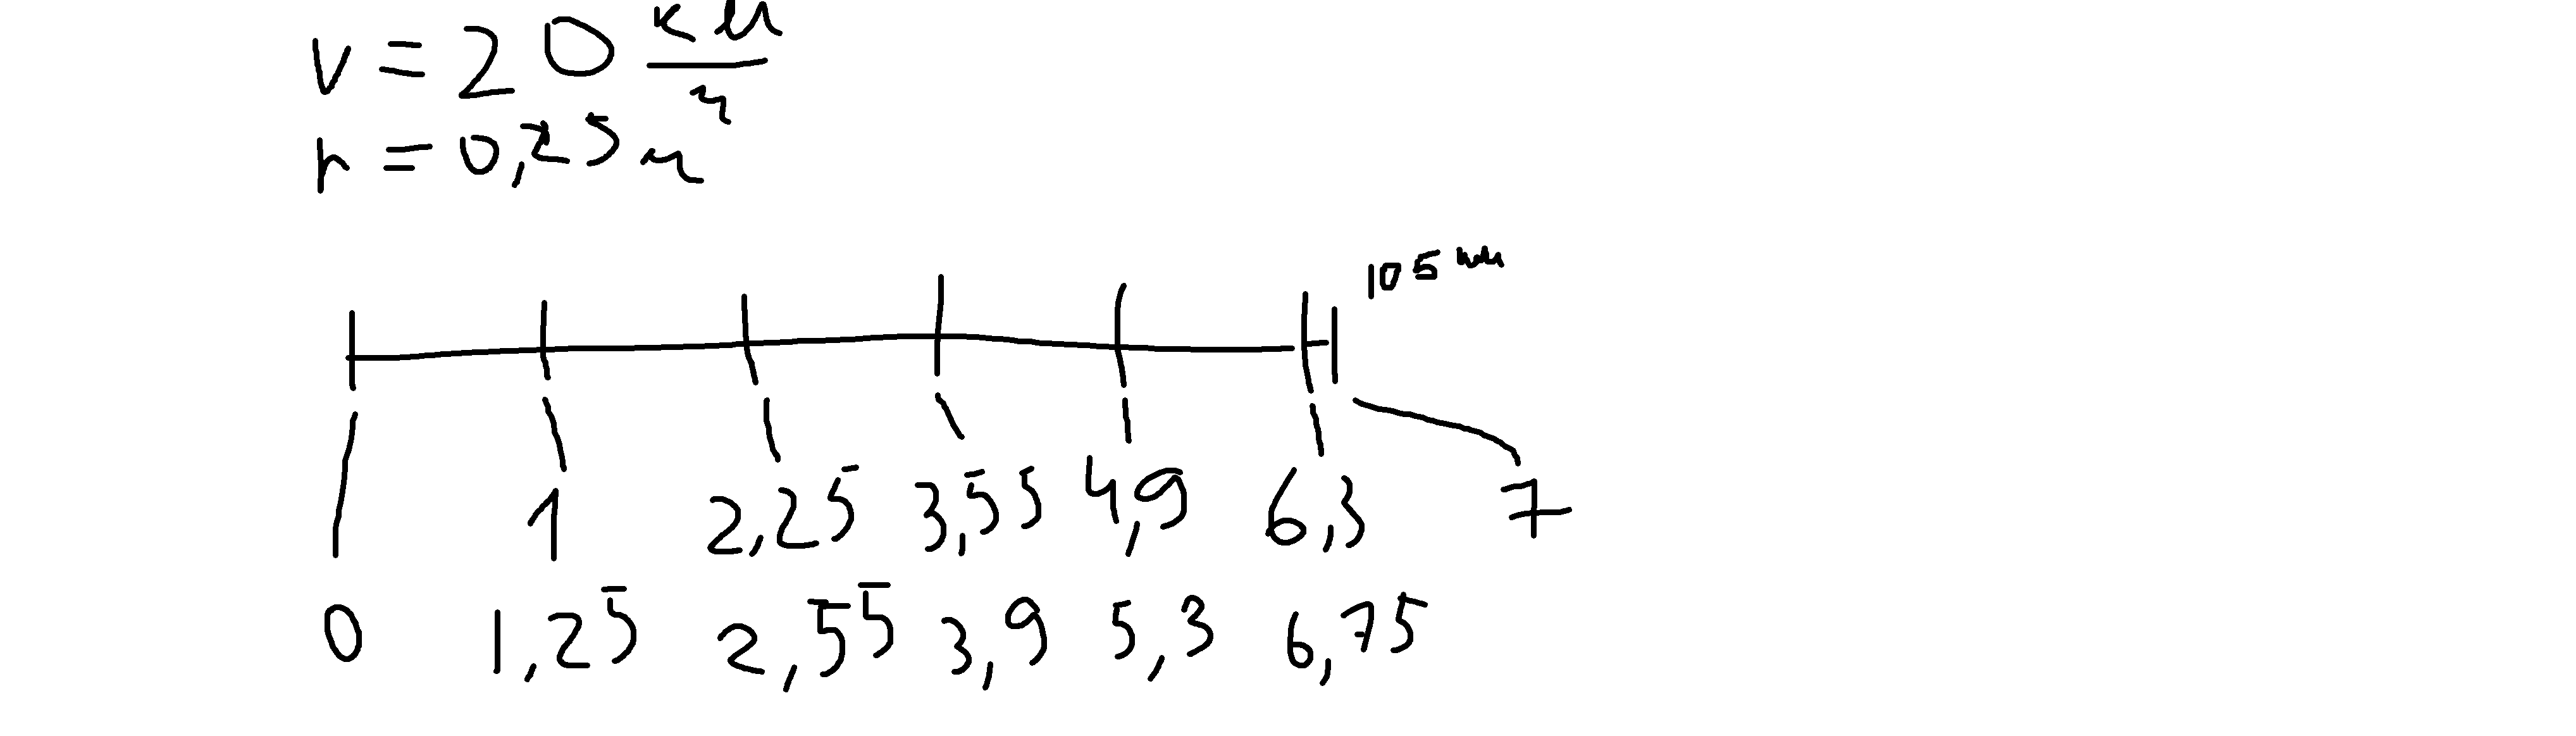 v = 20 км/ч
r = 0,25 ч
105 км
1 2,25 3,55 4,9 6,3 7
0 1,25 2,55 3,9 5,3 6,75